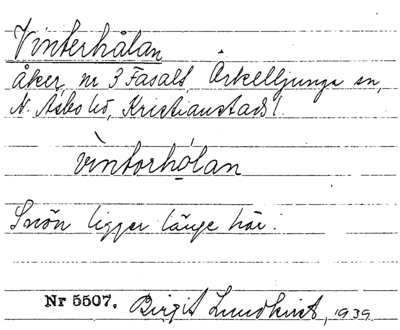 Vinterhålan
åker, nr 3 Fasalt, Örkelljunga sn,
N. Åsbo hd, Kristianstads l.
vìntorhǫlan
Snön ligger länge här.
Nr 5507. Birgit Lundkvist, 1939